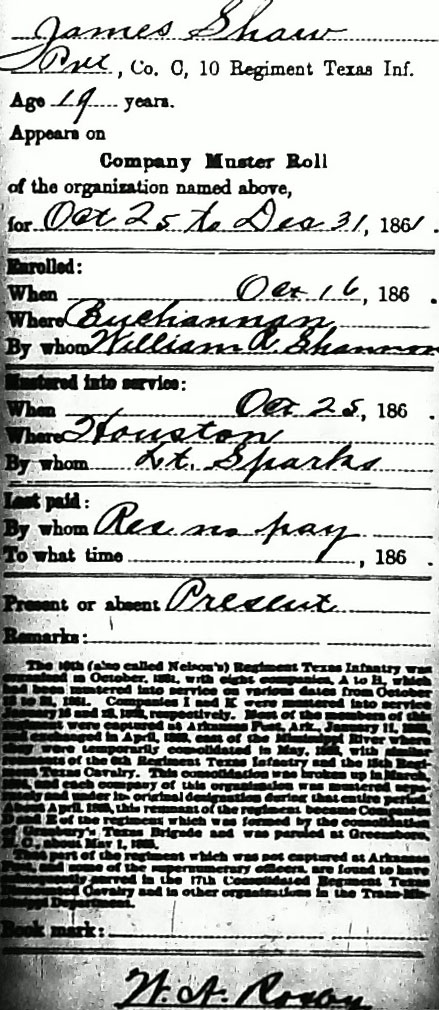 James Shaw
Pvt, Co. C, 10 Regiment Texas Inf.
Age 19 years.
Appears on
Company Muster Roll
of the organization named above,
for Oct 25 to Dec 31, 1861.
Enrolled:
When Oct 16, 186 .
Where Buchannan
By whom William R. Shannon
Mustered into service:
When Oct 25, 186 .
Where Houston
By whom Lt. Sparks
Last paid:
By whom Rec no pay
To what time , 186 .
Present or absent Present
Remarks:
The 10th (also called Nelson's) Regiment Texas Infantry was
organized in October, 1861, with eight companies, A to H, which
had been mustered into service on various dates from October
to 31, 1861. Companies I and K were mustered into service
January and , 1862, respectively. Most of the members of this
regiment were captured at Arkansas Post, Ark., January 11, 1863,
and exchanged in April, 1863, east of the Mississippi River where
they were temporarily consolidated in May, 1863, with similar
remnants of the 6th Regiment Texas Infantry and the 15th Regi-
ment Texas Cavalry. This consolidation was broken up in March,
and each company of this organization was mustered sepa-
rately and under its original designation during that entire period.
About April, 1865, this remnant of the regiment became Companies
D and E of the regiment which was formed by the consolidation
of Granbury's Texas Brigade and was paroled at Greensboro,
N. C., about May 1, 1865.
That part of the regiment which was not captured at Arkansas
Post, and some of the supernumerary officers, are found to have
subsequently served in the 17th Consolidated Regiment Texas
Dismounted Cavalry and in other organizations in the Trans-Mis-
sissippi Department.
Book mark: